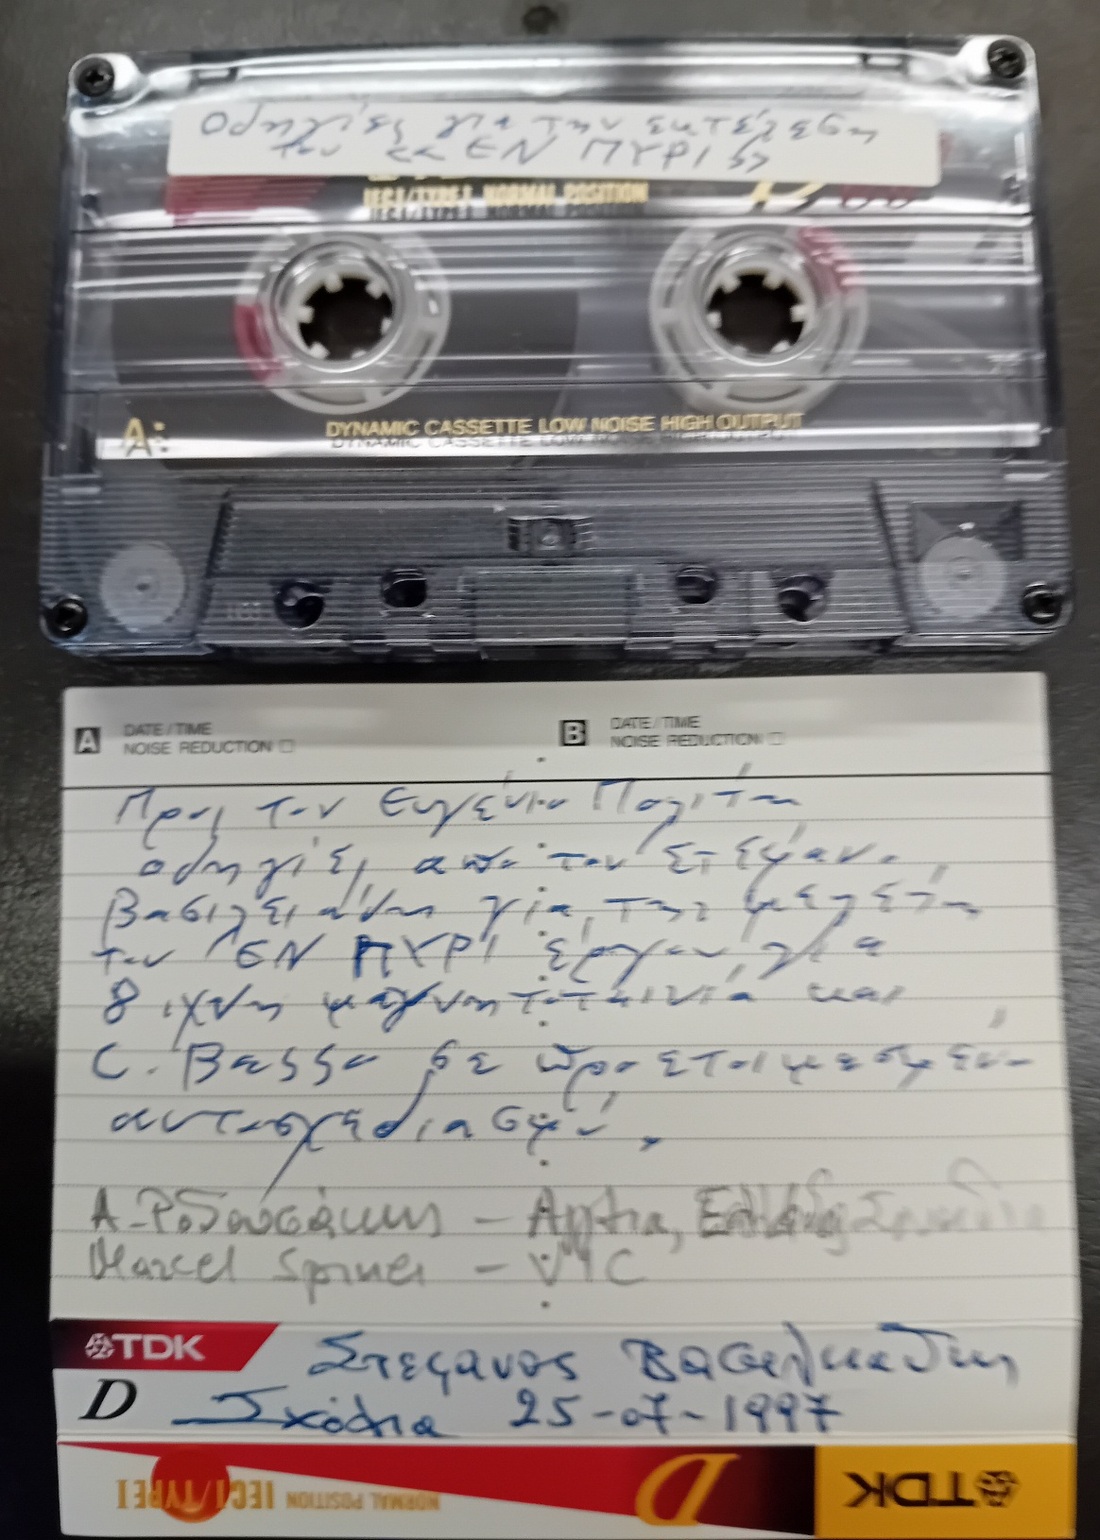 Οδηγίες για την εκτέλεση
του << ΕΝ ΠΥΡΙ >>
IEC I/TYPE I NORMAL POSITION
A:
DYNAMIC CASSETTE LOW NOISE HIGH OUTPUT
A DATE/TIME
NOISE REDUCTION
B DATE/TIME
NOISE REDUCTION
Προς τον Ευγένιο Πολίτη
οδηγίες απο τον Στέφανο
Βασιλειάδη για την μελέτη
του ΕΝ ΠΥΡΙ έργου για
8 ιχνη μαγνητοταινία και
C. Basso σε προετοιμασμένο
αυτοσχεδιασμό.
Α. Ροδουσάκης –
Marcel Spinei –
TDK
Στέφανος Βασιλειάδης
D Σχόλια 25-07-1997
IEC I/TYPE I NORMAL POSITION D TDK